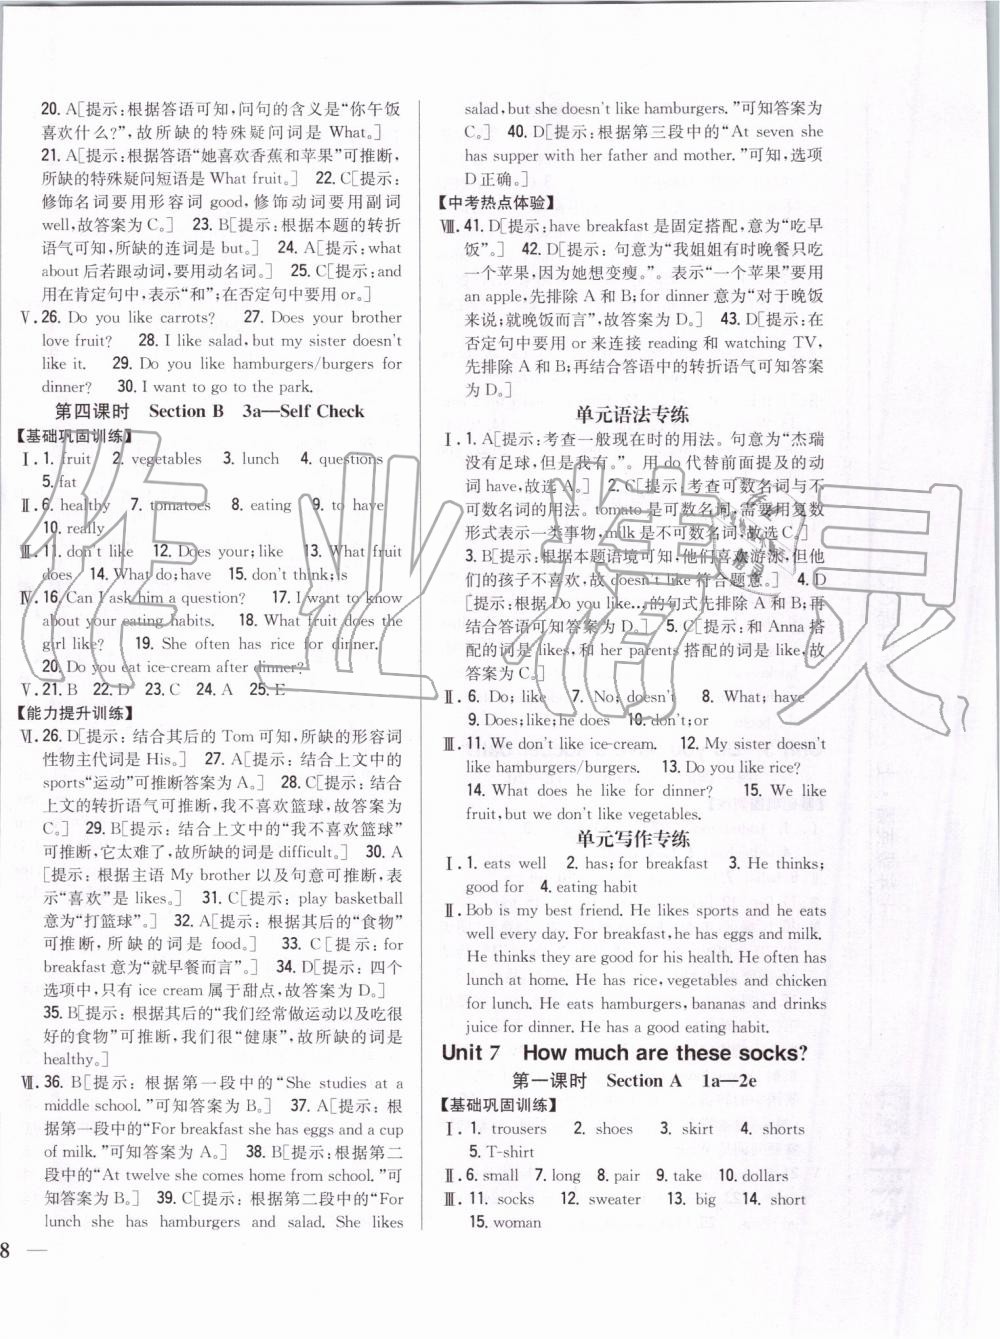 20. A[提示:根据答语可知,问句的含义是“你午饭
喜欢什么?”,故所缺的特殊疑问词是 What。]
21. A[提示:根据答语“她喜欢香蕉和苹果”可推断,
所缺的特殊疑问短语是 What fruit。] 22. C[提示:
修饰名词要用形容词 good,修饰动词要用副词
well,故答案为 C。] 23. B[提示:根据本题的转折
语气可知,所缺的连词是 but。] 24. A[提示:what
about 后若跟动词,要用动名词。] 25. C[提示:and
用在肯定句中,表示“和”;在否定句中要用 or。]
Ⅴ. 26. Do you like carrots? 27. Does your brother
love fruit? 28. I like salad, but my sister doesn't
like it. 29. Do you like hamburgers/burgers for
dinner? 30. I want to go to the park.
第四课时 Section B 3a—Self Check
【基础巩固训练】
Ⅰ. 1. fruit 2. vegetables 3. lunch 4. questions
5. fat
Ⅱ. 6. healthy 7. tomatoes 8. eating 9. to have
10. really
Ⅲ. 11. don't like 12. Does your; like 13. What fruit
does 14. What do; have 15. don't think; is
Ⅳ. 16. Can I ask him a question? 17. I want to know
about your eating habits. 18. What fruit does the
girl like? 19. She often has rice for dinner.
20. Do you eat ice-cream after dinner?
Ⅴ. 21. B 22. D 23. C 24. A 25. E
【能力提升训练】
Ⅵ. 26. D[提示:结合其后的 Tom 可知,所缺的形容词
性物主代词是 His。] 27. A[提示:结合上文中的
sports“运动”可推断答案为 A。] 28. C[提示:结合
上文的转折语气可推断,我不喜欢篮球,故答案为
C。] 29. B[提示:结合上文中的“我不喜欢篮球”
可推断,它太难了,故所缺的词是 difficult。] 30. A
[提示:根据主语 My brother 以及句意可推断,表
示“喜欢”是 likes。] 31. C[提示:play basketball
意为“打篮球”。] 32. A[提示:根据其后的“食物”
可推断,所缺的词是 food。] 33. C[提示:for
breakfast 意为“就早餐而言”。] 34. D[提示:四个
选项中,只有 ice cream 属于甜点,故答案为 D。]
35. B[提示:根据其后的“我们经常做运动以及吃很
好的食物”可推断,我们很“健康”,故所缺的词是
healthy。]
Ⅶ. 36. B[提示:根据第一段中的“She studies at a
middle school. ”可知答案为 B。] 37. A[提示:根
据第一段中的“For breakfast she has eggs and a cup
of milk. ”可知答案为 A。] 38. B[提示:根据第二
段中的“At twelve she comes home from school. ”可
知答案为 B。] 39. C[提示:根据第二段中的“For
lunch she has hamburgers and salad. She likes
8 —
salad, but she doesn't like hamburgers. ”可知答案为
C。] 40. D[提示:根据第三段中的“At seven she
has supper with her father and mother. ”可知,选项
D 正确。]
【中考热点体验】
Ⅷ. 41. D[提示:have breakfast 是固定搭配,意为“吃早
饭”。] 42. D[提示:句意为“我姐姐有时晚餐只吃
一个苹果,因为她想变瘦。”。表示“一个苹果”要用
an apple,先排除 A 和 B;for dinner 意为“对于晚饭
来说;就晚饭而言”,故答案为 D。] 43. D[提示:在
否定句中要用 or 来连接 reading 和 watching TV,
先排除 A 和 B;再结合答语中的转折语气可知答案
为 D。]
单元语法专练
Ⅰ. 1. A[提示:考查一般现在时的用法。句意为“杰瑞
没有足球,但是我有。”。用 do 代替前面提及的动
词 have,故选 A。] 2. C[提示:考查可数名词与不
可数名词的用法。tomato 是可数名词,需要用复数
形式表示一类事物,milk 是不可数名词,故选 C。]
3. B[提示:根据本题语境可知,他们喜欢游泳,但他
们的孩子不喜欢,故 doesn't like 符合题意。] 4. D
[提示:根据 Do you like...的句式先排除 A 和 B;再
结合答语可知答案为 D。] 5. C[提示:和 Anna 搭
配的词是 likes,和 her parents 搭配的词是 like,故
答案为 C。]
Ⅱ. 6. Do; like 7. No; doesn't 8. What; have
9. Does; like; he does 10. don't; or
Ⅲ. 11. We don't like ice-cream. 12. My sister doesn't
like hamburgers/burgers. 13. Do you like rice?
14. What does he like for dinner? 15. We like
fruit, but we don't like vegetables.
单元写作专练
Ⅰ. 1. eats well 2. has; for breakfast 3. He thinks;
good for 4. eating habit
Ⅱ. Bob is my best friend. He likes sports and he eats
well every day. For breakfast, he has eggs and milk.
He thinks they are good for his health. He often has
lunch at home. He has rice, vegetables and chicken
for lunch. He eats hamburgers, bananas and drinks
juice for dinner. He has a good eating habit.
Unit 7 How much are these socks?
第一课时 Section A 1a—2e
【基础巩固训练】
Ⅰ. 1. trousers 2. shoes 3. skirt 4. shorts
5. T-shirt
Ⅱ. 6. small 7. long 8. pair 9. take 10. dollars
Ⅲ. 11. socks 12. sweater 13. big 14. short
15. woman
作业精灵